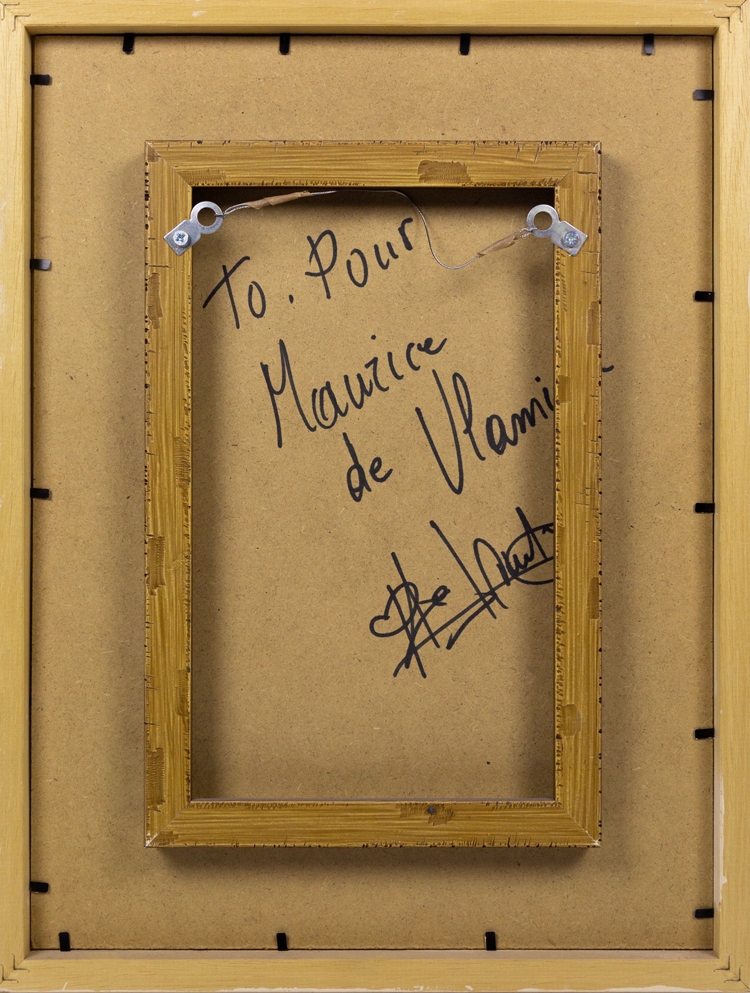 To. Pour
Maurice
de Vlami